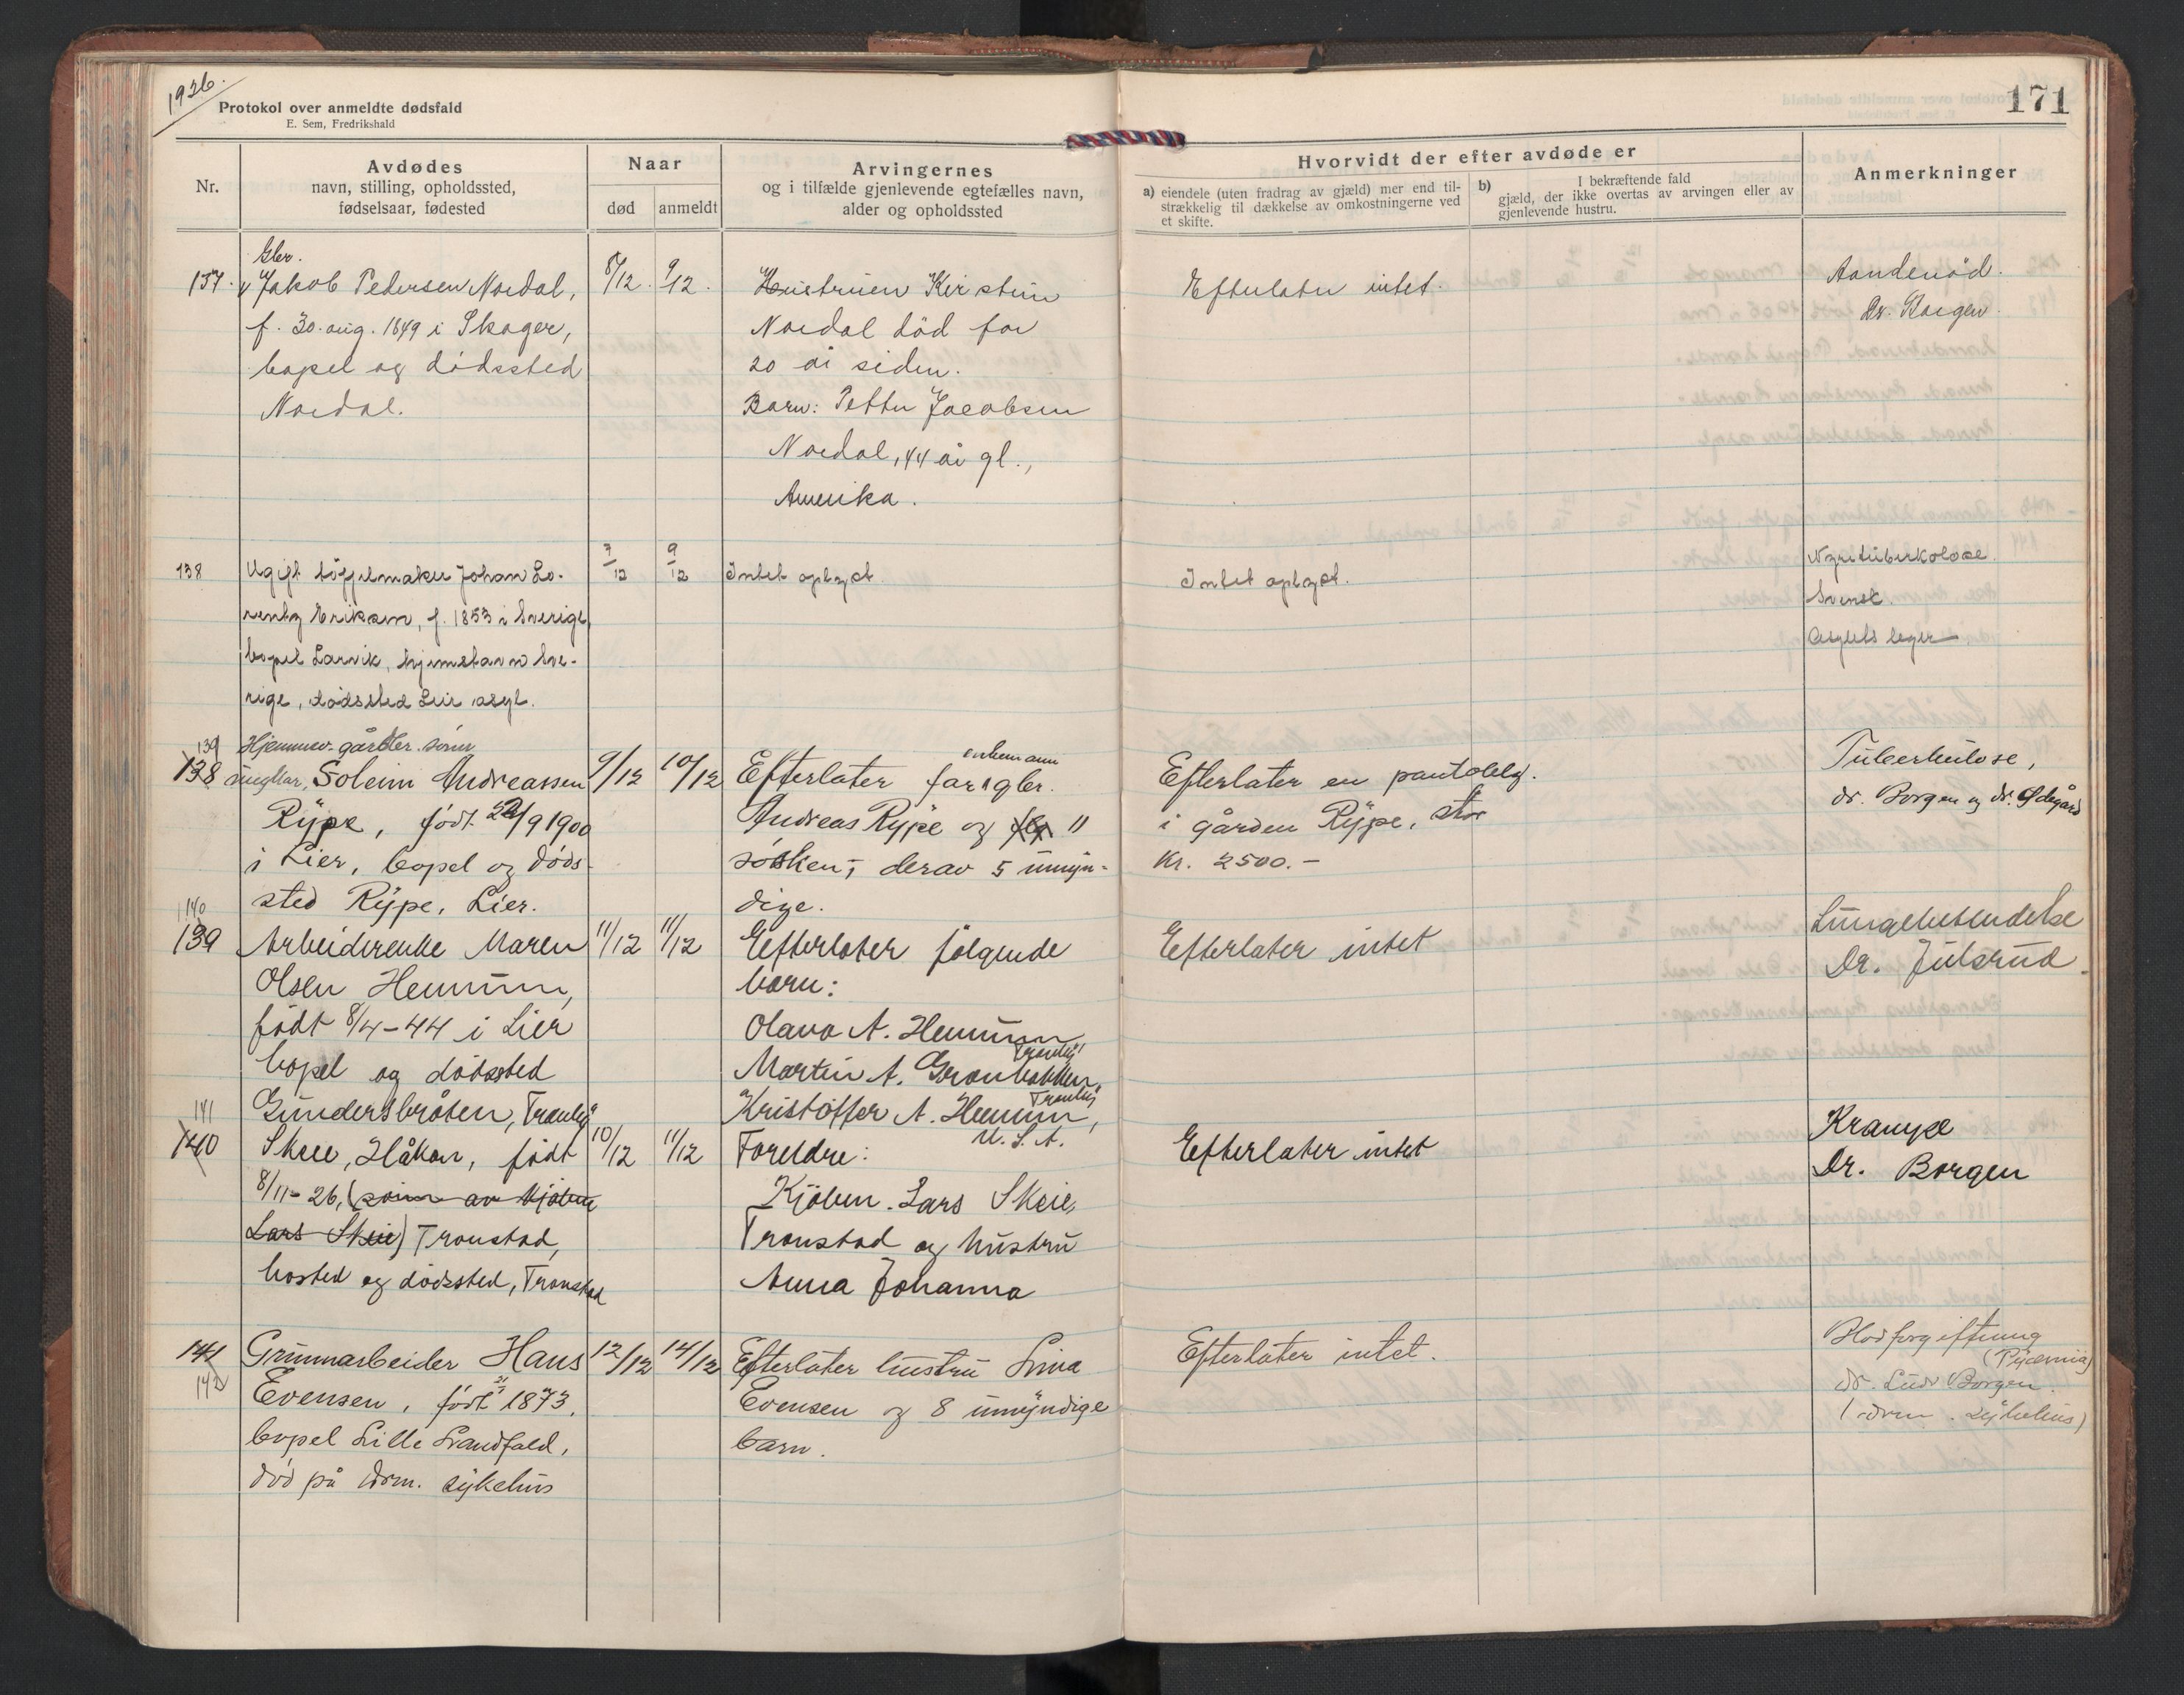 1926.
Protokol over anmeldte dødsfald
E. Sem, Fredrikshald
171
Nr.
Avdødes
navn, stilling, opholdssted,
fødselsaar, fødested
Naar
død
anmeldt
Arvingernes
og i tilfælde gjenlevende egtefælles navn,
alder og opholdssted
Hvorvidt der efter avdøde er
a) eiendele (uten fradrag av gjæld) mer end til-
strækkelig til dækkelse av omkostningerne ved
et skifte.
b) I bekræftende fald
gjæld, der ikke overtas av arvingen eller av
gjenlevende hustru.
Anmerkninger
137.
Gbr.
Jakob Pedersen Nordal,
f. 30. aug. 1849 i Skoger,
bopel og dödssted
Nordal.
8/12.
9/12.
Hustruen Kirstine
Nordal död for
20 år siden.
Barn: Petter Jacobsen
Nordal, 44 år gl.,
Amerika.
Efterlater intet.
Aandenöd.
Dr. Borgen.
138
Ugift töffelmaker Johan Lo-
rentz Eriksen, f. 1853 i Sverige,
bopel Larvik, hjemstavn Sve-
rige, dödssted Lier asyl.
7/12
9/12
Intet oplyst
Intet oplyst.
Nyretuberkolose.
Svensk.
Asylets leger
139
138
Hjemmev. gårdbr. sönn
ungkar, Soleim Andreassen
Rype, född 22/9 1900
i Lier, bopel og döds-
sted Rype, Lier.
9/12
10/12
Efterlater far, enkemann gbr.
Andreas Rype og 11
sösken, derav 5 umyn-
dige.
Efterlater en pantoblig.
i gården Rype, stor
Kr. 2500.-
Tuberkulose,
dr. Borgen og dr. Ødegård
140
139
Arbeiderenke Maren
Olsen Hennum,
född 8/4-44 i Lier
bopel og dödssted
Gundersbråten, Tranby
11/12
11/12
Efterlater fölgende
barn:
Olava A. Hennum
Tranby
Martin A. Grönbakken,
Tranby
Kristoffer A. Hennum,
U. S. A.
Efterlater intet
Lungebetendelse
Dr. Julsrud.
141
140
Skeie, Håkon, född
8/11-26, (sönn av kjöbm.
Lars Skeie) Tronstad,
bosted og dödssted, Tronstad
10/12
11/12
Foreldre:
Kjöbm. Lars Skeie,
Tronstad og hustru
Anna Johanna
Efterlater intet
Krampe
Dr. Borgen
141
142
Grunnarbeider Hans
Evensen, född 1873,
bopel Lille Landfald,
död på Drm. sykehus
12/12
14/12
Efterlater hustru Lina
Evensen og 8 umyndige
barn.
Efterlater intet.
Blodforgiftning
(Pyæmia)
dr. Ludv Borgen.
(Drm. sykehus)